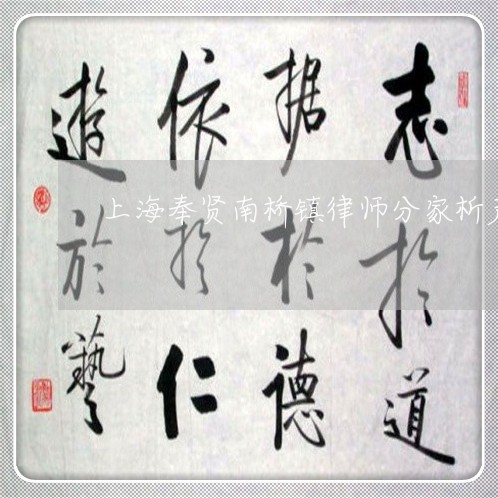 志扵道
据扵德
依扵仁
遊於藝
上海奉贤南桥镇律师分家析